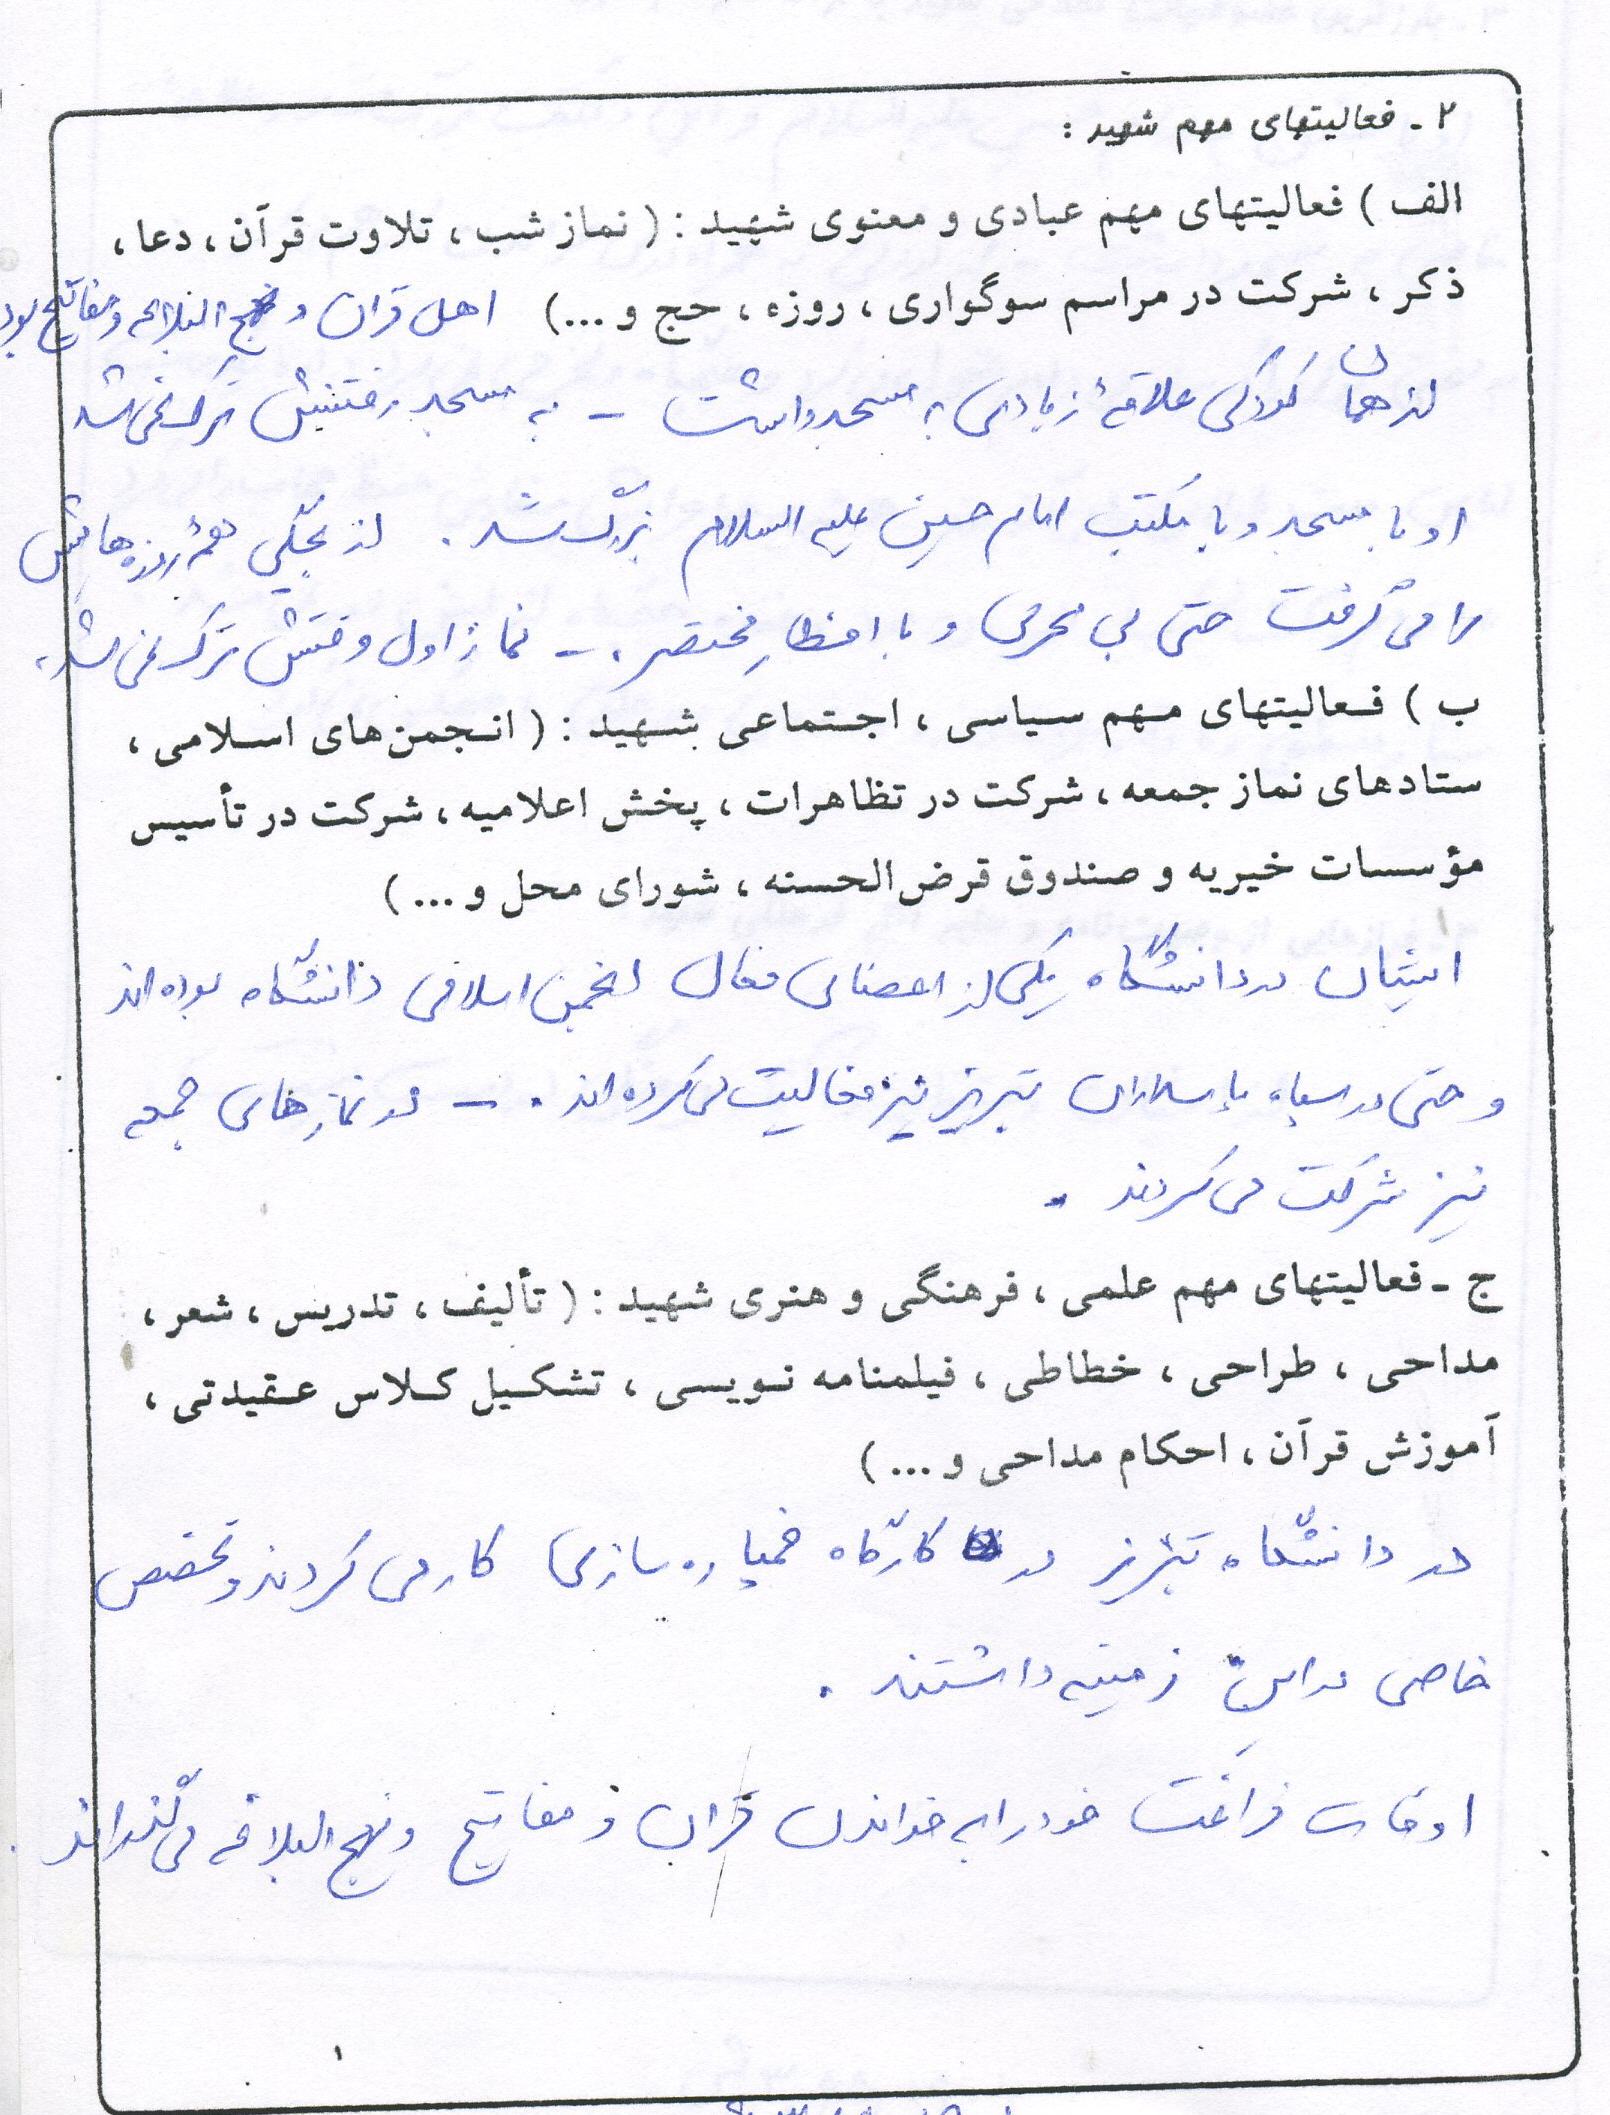 ۲ - فعالیتهای مهم شهید :
الف ) فعالیتهای مهم عبادی و معنوی شهید : ( نماز شب ، تلاوت قرآن ، دعا ،
ذکر ، شرکت در مراسم سوگواری ، روزه ، حج و ...) اهل قران و نهج البلاغه و مفاتیح بود
از همان کودکی علاقهٔ زیادی به مسجد داشت - به مسجد رفتنش ترک نمی شد
او با مسجد و با مکتب امام حسین علیه السلام بزرگ شد . از بچگی همهٔ روزه هایش
را می گرفت حتی بی سحری و با افطار مختصر . - نماز اول وقتش ترک نمی شد .
ب ) فعالیتهای مهم سیاسی ، اجتماعی شهید : ( انجمن‌های اسلامی ،
ستادهای نماز جمعه ، شرکت در تظاهرات ، پخش اعلامیه ، شرکت در تأسیس
مؤسسات خیریه و صندوق قرض‌الحسنه ، شورای محل و ... )
ایشان در دانشگاه یکی از اعضای فعال انجمن اسلامی دانشگاه بوده اند
و حتی در سپاه پاسداران تبریز نیز فعالیت می کرده اند . - در نمازهای جمعه
نیز شرکت می کردند .
ج - فعالیتهای مهم علمی ، فرهنگی و هنری شهید : ( تألیف ، تدریس ، شعر ،
مداحی ، طراحی ، خطاطی ، فیلمنامه نویسی ، تشکیل کلاس عقیدتی ،
آموزش قرآن ، احکام مداحی و ... )
در دانشگاه تبریز در کارگاه خمپاره سازی کار می کردند و تخصص
خاصی در این زمینه داشتند .
اوقات فراغت خود را به خواندن قران و مفاتیح و نهج البلاغه می گذراند .